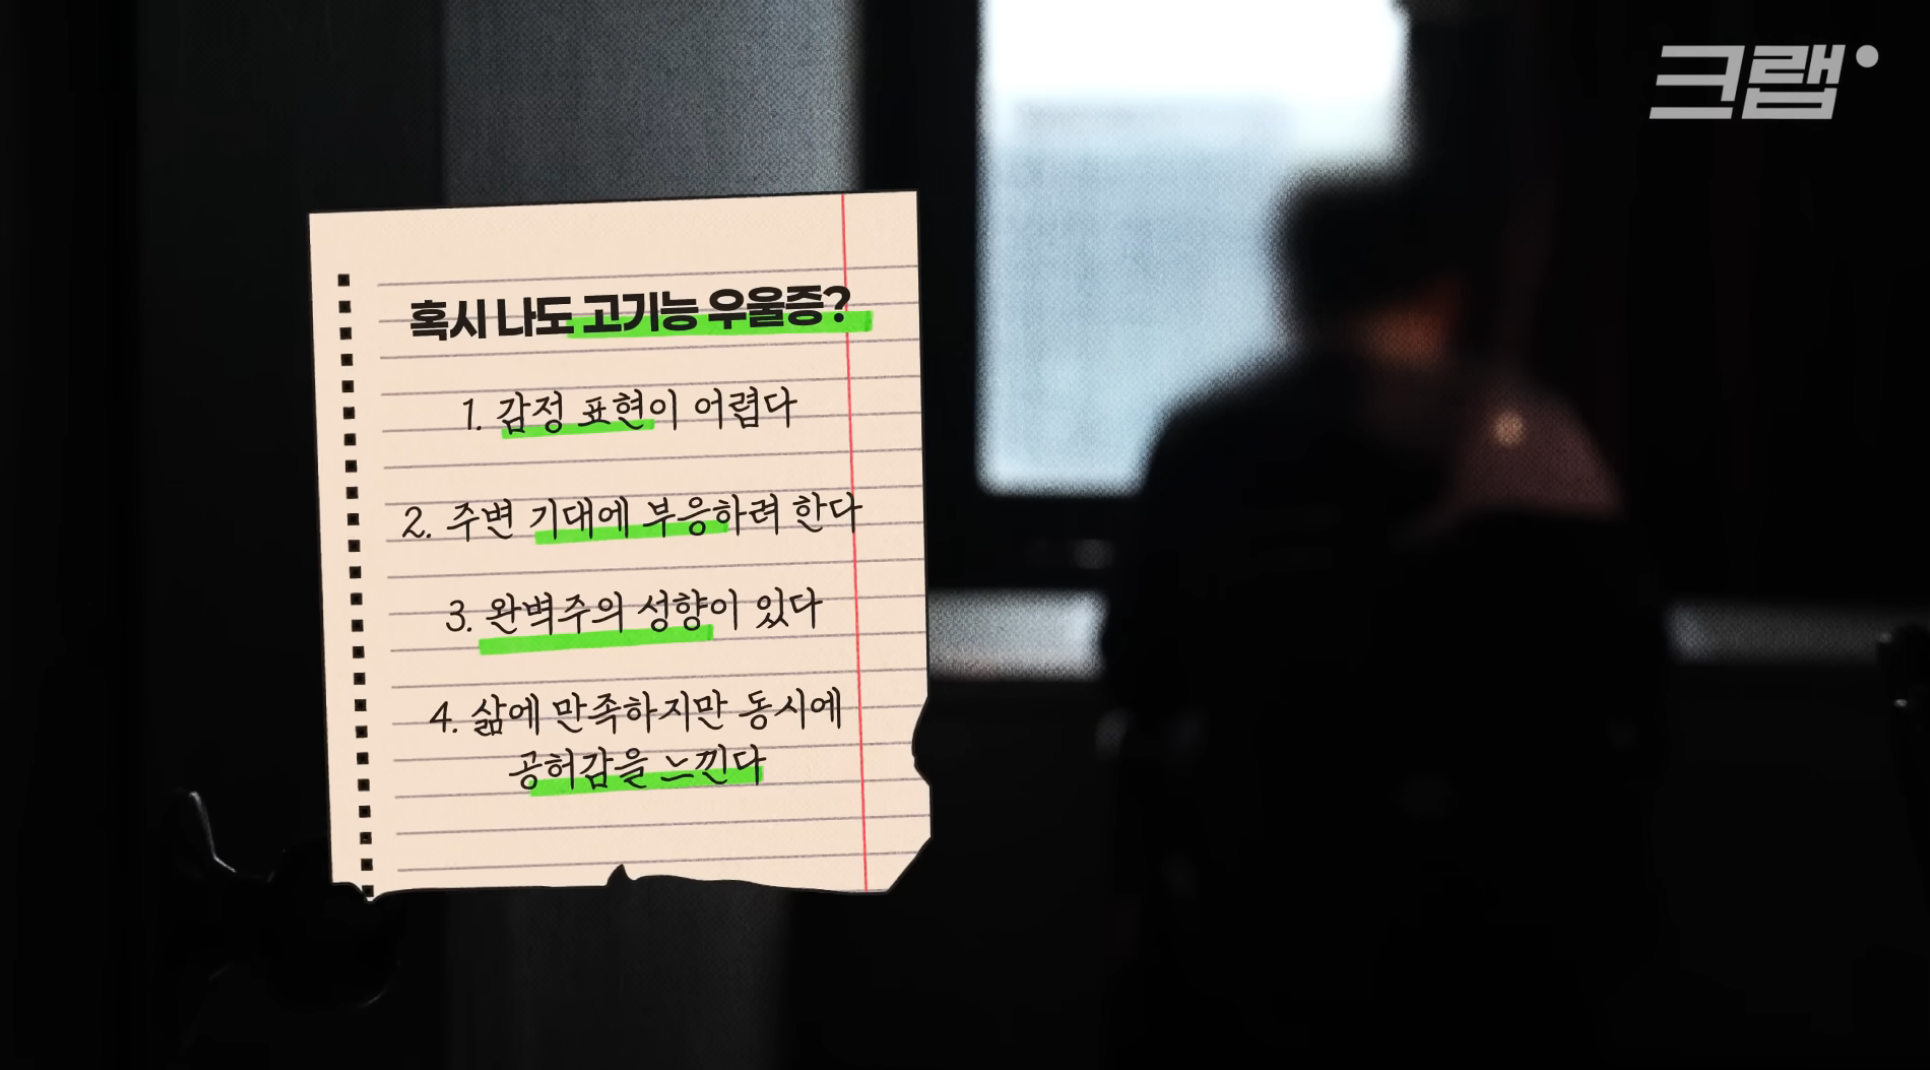 크랩
혹시 나도 고기능 우울증?
1. 감정 표현이 어렵다
2. 주변 기대에 부응하려 한다
3. 완벽주의 성향이 있다
4. 삶에 만족하지만 동시에
공허감을 느낀다